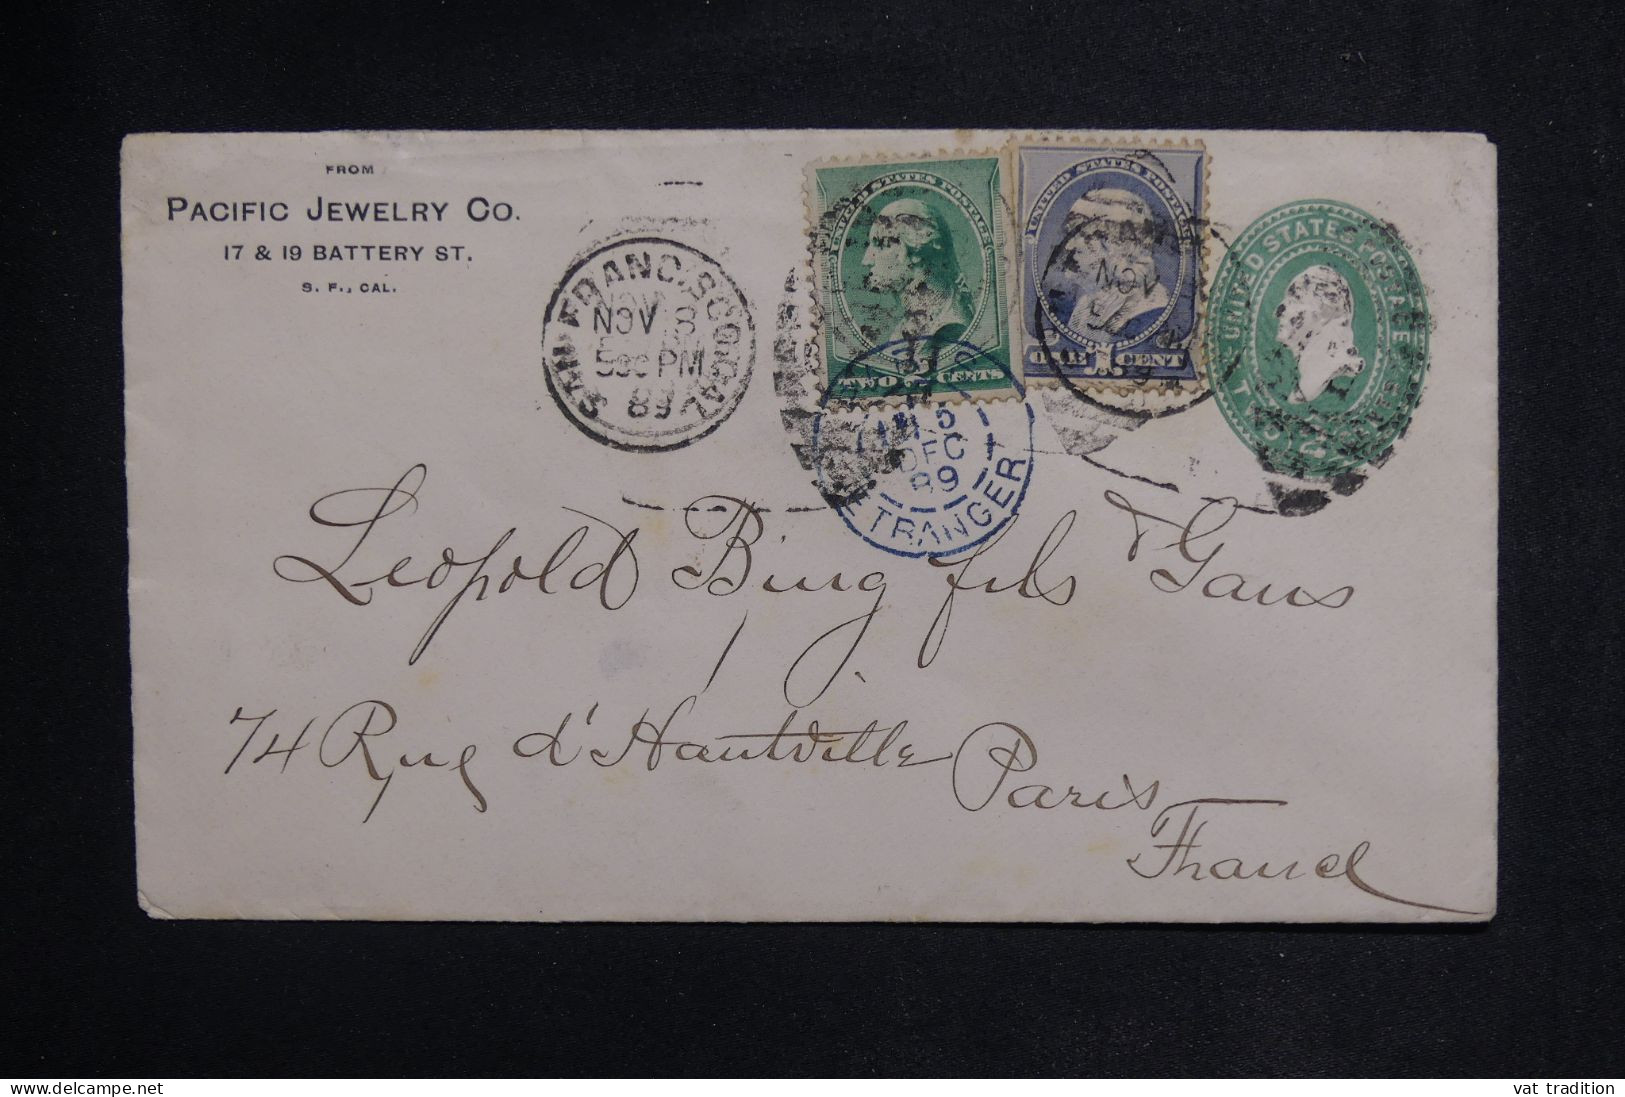 FROM
PACIFIC JEWELRY CO.
17 & 19 BATTERY ST.
S. F., CAL.
SAN FRANCISCO CAL
NOV 8
5 30 PM
89
UNITED STATES POSTAGE
TWO 2 CENTS
UNITED STATES POSTAGE
ONE 1 CENT
NOV
89
UNITED STATES POSTAGE
TWO
5
DEC
89
ETRANGER
Leopold Bing fils & Gans
74 Rue d'Hautville Paris
France
vat tradition